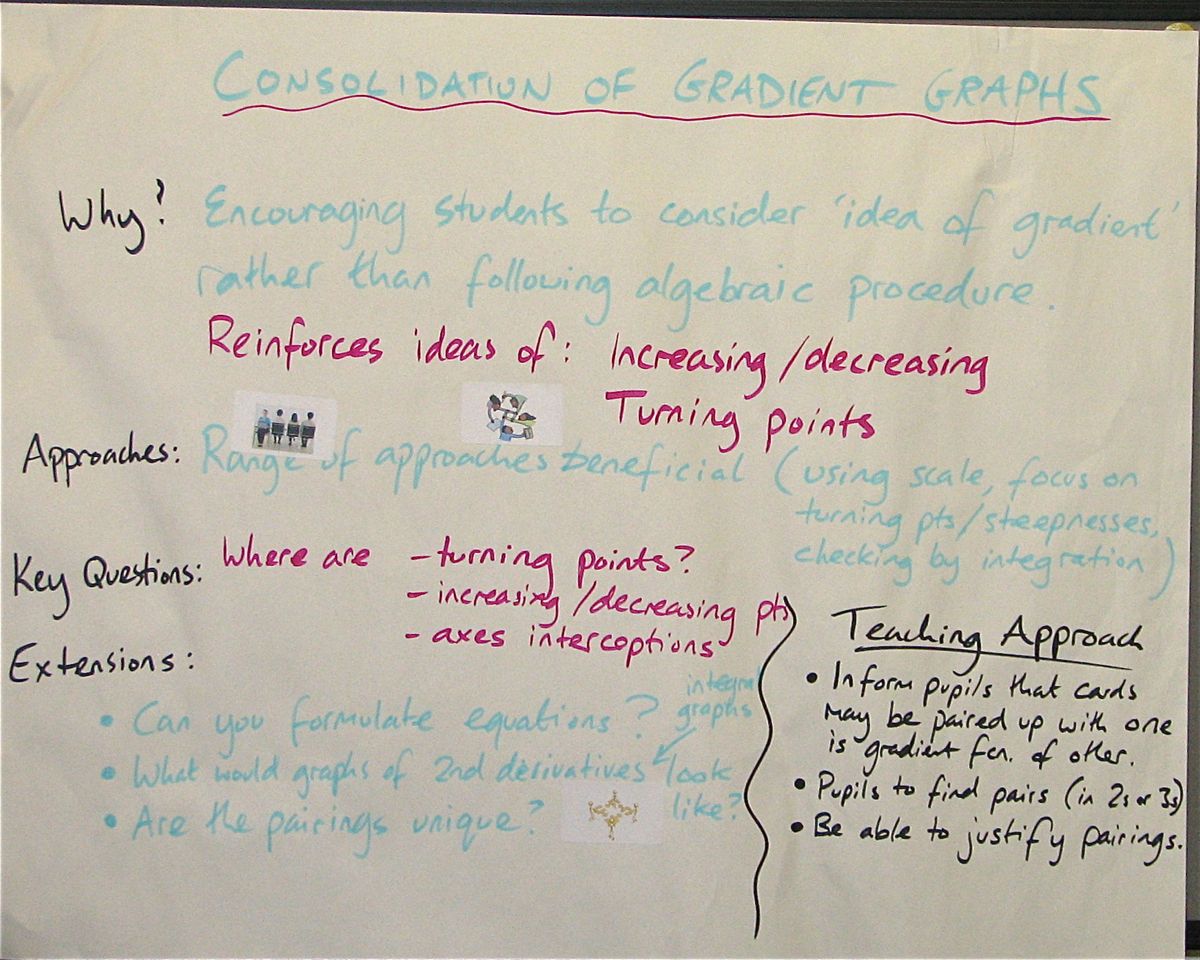 CONSOLIDATION OF GRADIENT GRAPHS
Why? Encouraging students to consider 'idea of gradient'
rather than following algebraic procedure.
Reinforces ideas of: Increasing/decreasing
Turning points
Approaches: Range of approaches beneficial (using scale, focus on
turning pts/steepnesses,
checking by integration)
Key Questions: Where are - turning points?
- increasing/decreasing pts
- axes interceptions
Extensions:
• Can you formulate equations?
• What would graphs of 2nd derivatives look
like?
integral
graphs
• Are the pairings unique?
Teaching Approach
• Inform pupils that cards
may be paired up with one
is gradient fcn. of other.
• Pupils to find pairs (in 2s or 3s)
• Be able to justify pairings.